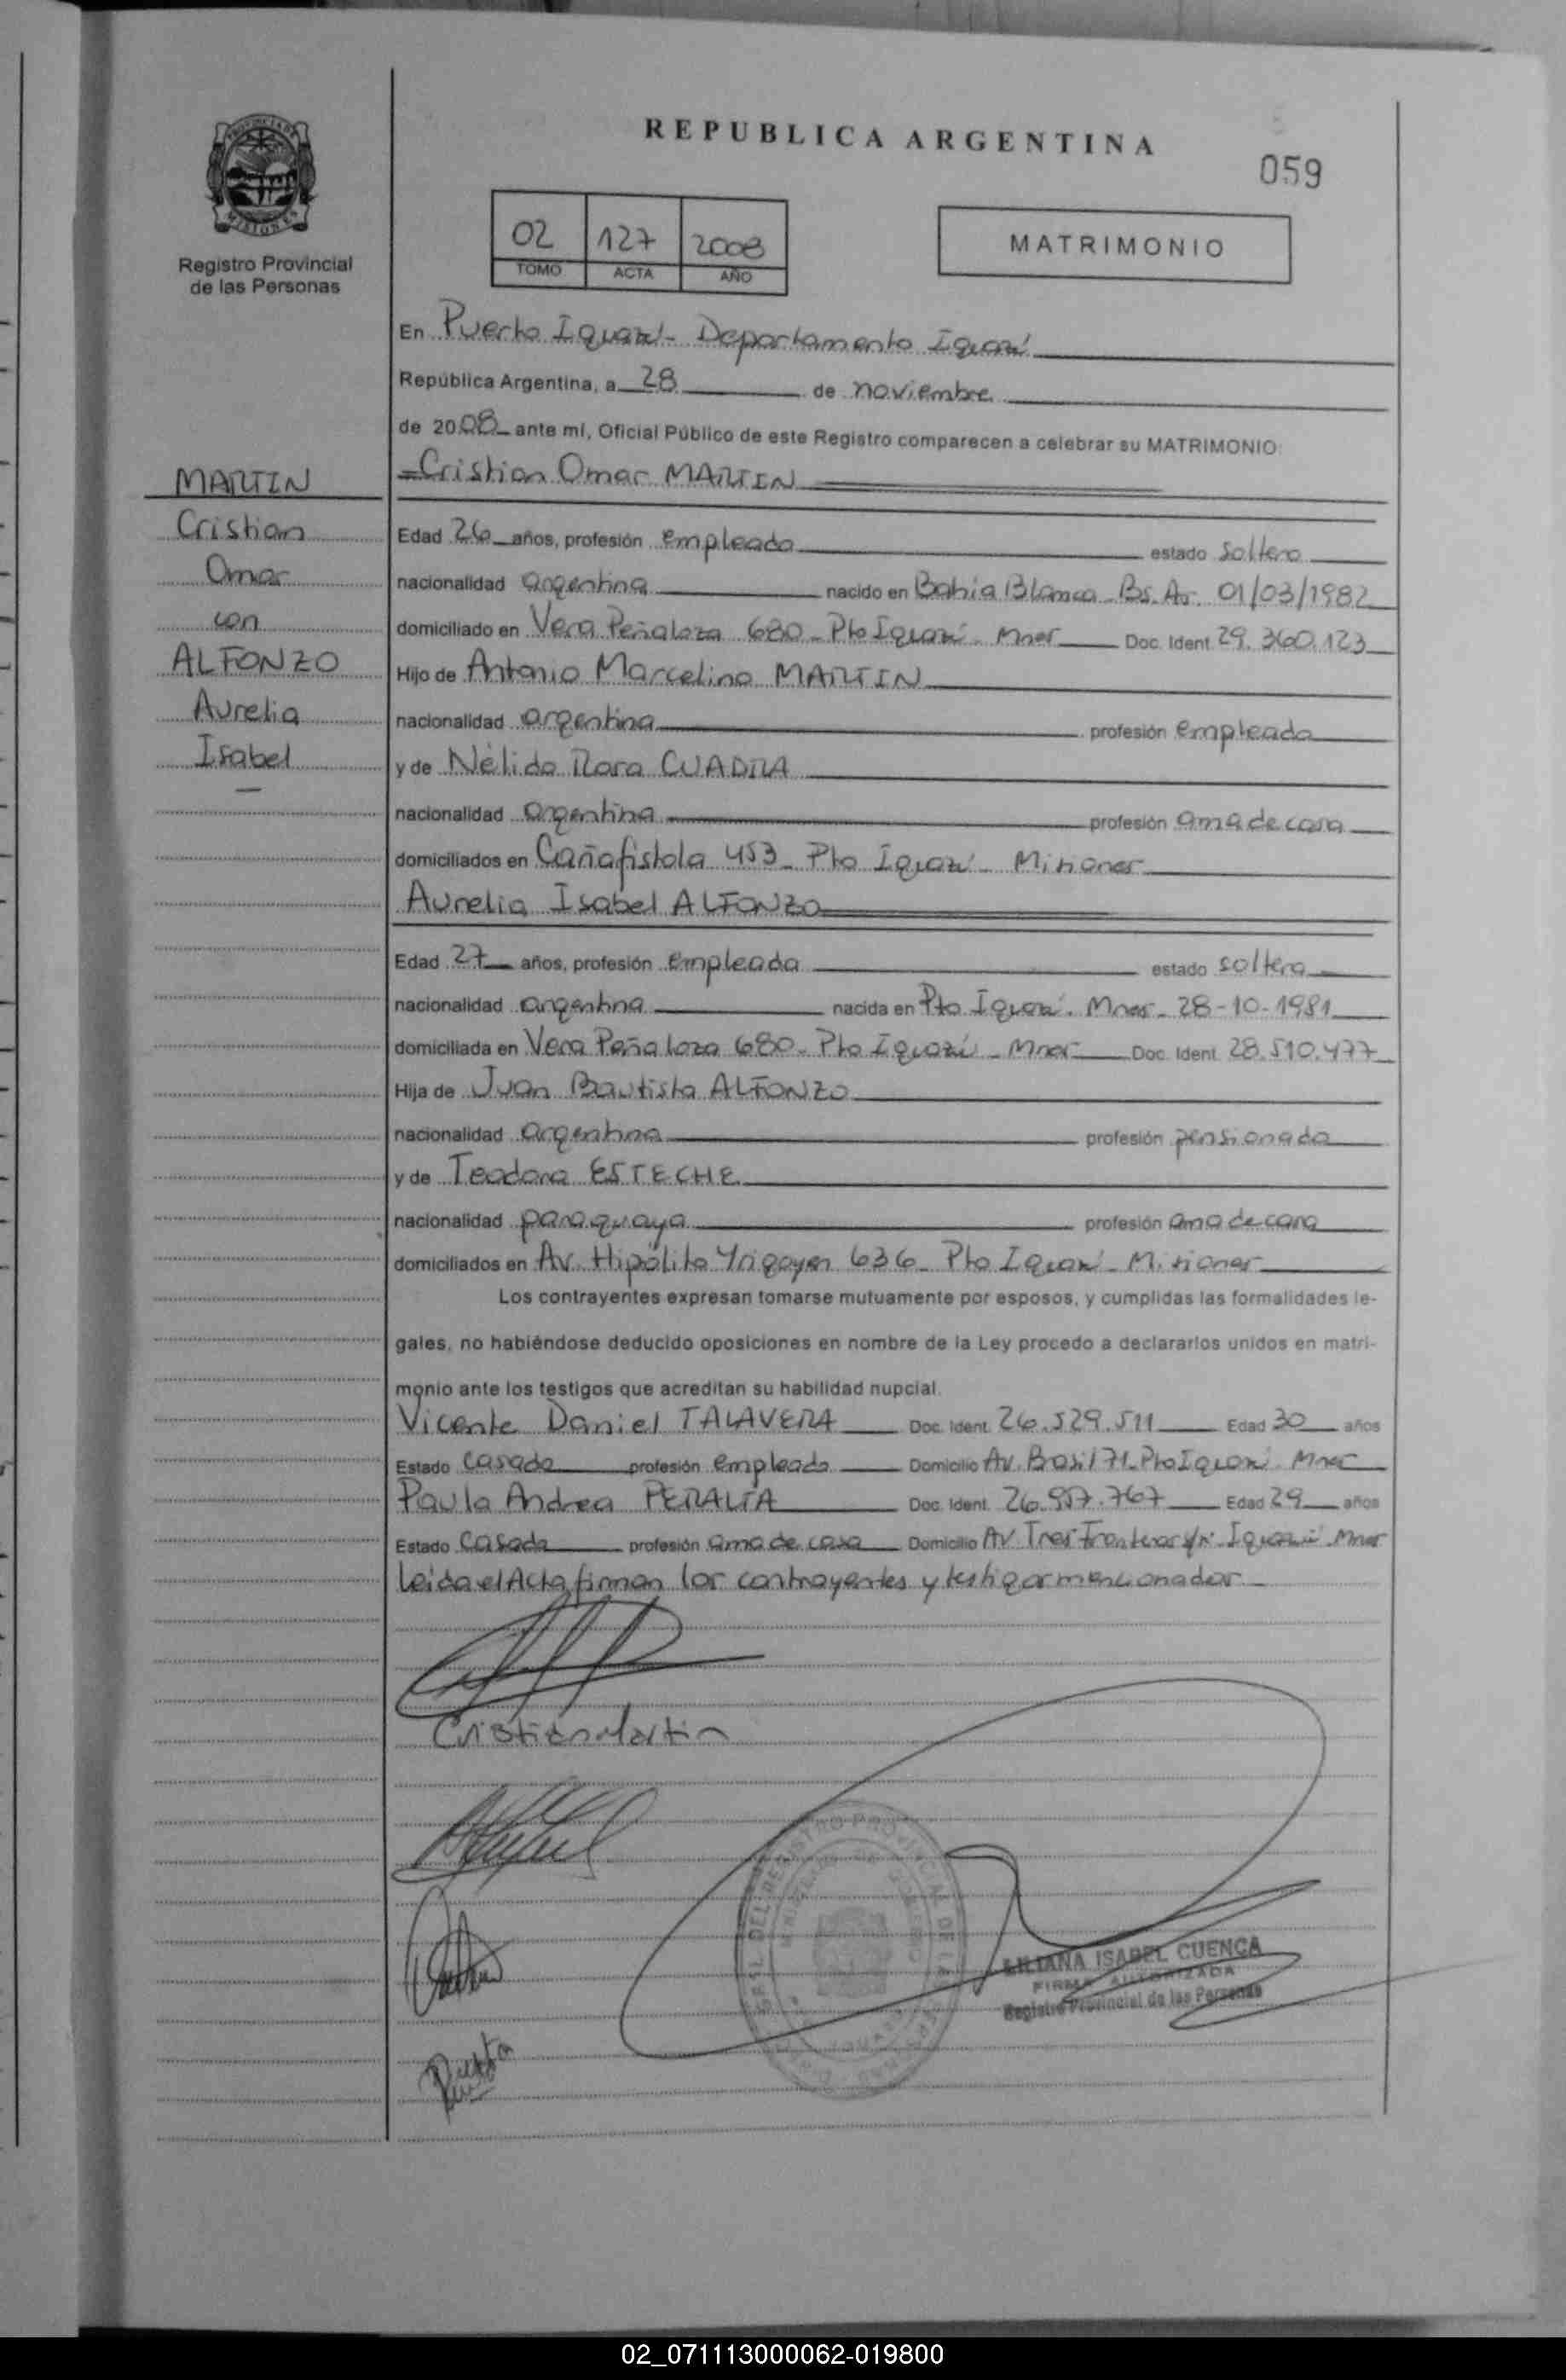 REPUBLICA ARGENTINA
059
02 127 2008
TOMO ACTA AÑO
MATRIMONIO
PROVINCIA DE
MISIONES
Registro Provincial
de las Personas
MARTIN
Cristian
Omar
con
ALFONZO
Aurelia
Isabel
En Puerto Iguazú - Departamento Iguazú
República Argentina, a 28 de noviembre
de 2008 ante mí, Oficial Público de este Registro comparecen a celebrar su MATRIMONIO:
Cristian Omar MARTIN
Edad 26 años, profesión empleado estado soltero
nacionalidad argentina nacido en Bahía Blanca - Bs. As. 01/03/1982
domiciliado en Vera Peñaloza 680 - Pto Iguazú - Mnes Doc. Ident. 29.360.123
Hijo de Antonio Marcelino MARTIN
nacionalidad argentina profesión empleado
y de Nélida Rosa CUADRA
nacionalidad argentina profesión ama de casa
domiciliados en Cañafístola 453 - Pto Iguazú - Misiones
Aurelia Isabel ALFONZO
Edad 27 años, profesión empleada estado soltera
nacionalidad argentina nacida en Pto Iguazú. Mnes - 28-10-1981
domiciliada en Vera Peñaloza 680 - Pto Iguazú - Mnes Doc. Ident. 28.510.477
Hija de Juan Bautista ALFONZO
nacionalidad argentina profesión pensionado
y de Teodora ESTECHE
nacionalidad paraguaya profesión ama de casa
domiciliados en Av. Hipólito Yrigoyen 636 - Pto Iguazú - Misiones
Los contrayentes expresan tomarse mutuamente por esposos, y cumplidas las formalidades le-
gales, no habiéndose deducido oposiciones en nombre de la Ley procedo a declararlos unidos en matri-
monio ante los testigos que acreditan su habilidad nupcial.
Vicente Daniel TALAVERA Doc. Ident. 26.529.511 Edad 30 años
Estado casado profesión empleado Domicilio Av. Brasil 71 - Pto Iguazú. Mnes
Paula Andrea PERALTA Doc. Ident. 26.957.767 Edad 29 años
Estado casada profesión ama de casa Domicilio Av Tres Fronteras s/n - Iguazú - Mnes
Leída el Acta firman los contrayentes y testigos mencionados
Cristian Martin
LILIANA ISABEL CUENCA
FIRMA AUTORIZADA
Registro Provincial de las Personas
02_071113000062-019800